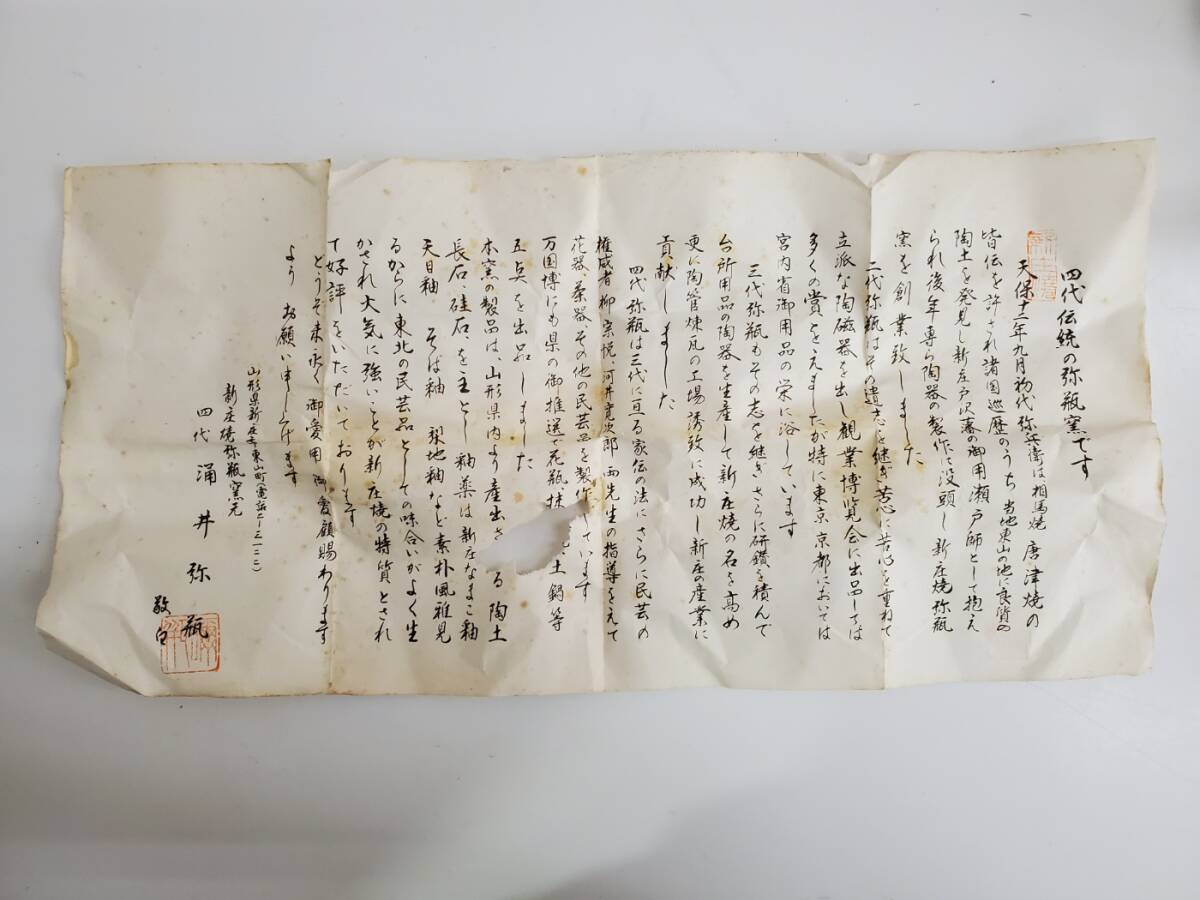 四代伝統の弥瓶窯です
天保十二年九月初代弥兵衛は相馬焼 唐津焼の
皆伝を許され諸国巡歴のうち 当地東山の地に良質の
陶土を発見し新庄戸沢藩の御用瀬戸師として抱え
られ後年専ら陶器の製作に没頭し新庄焼弥瓶
窯を創業致しました
二代弥瓶はその遺志を継ぎ苦心に苦心を重ねて
立派な陶磁器を出し観業博覧会に出品しては
多くの賞をえましたが特に東京京都においては
宮内省御用品の栄に浴しています
三代弥瓶もその志を継ぎさらに研鑽を積んで
台所用品の陶器を生産して新庄焼の名を高め
更に陶管煉瓦の工場誘致に成功し新庄の産業に
貢献しました
四代弥瓶は三代に亘る家伝の法にさらに民芸の
権威者柳宗悦、河井寛次郎 両先生の指導をえて
花器、茶器、その他の民芸品を製作しています
万国博にも県の御推選で花瓶、抹 土鍋等
五点を出品しました
本窯の製品は、山形県内より産出さ る陶土
長石、硅石、を主とし 釉薬は新庄なまこ釉
天目釉 そば釉 梨地釉など素朴風雅見
るからに東北の民芸品としての味合いがよく生
かされ火気に強いことが新庄焼の特質とされ
て好評をいただいております
どうぞ末永く御愛用 御愛顧賜わります
よう お願い申し上げます
山形県新庄市東山町(電話二-二一二二)
新庄焼弥瓶窯元
四代 涌井弥瓶
敬白